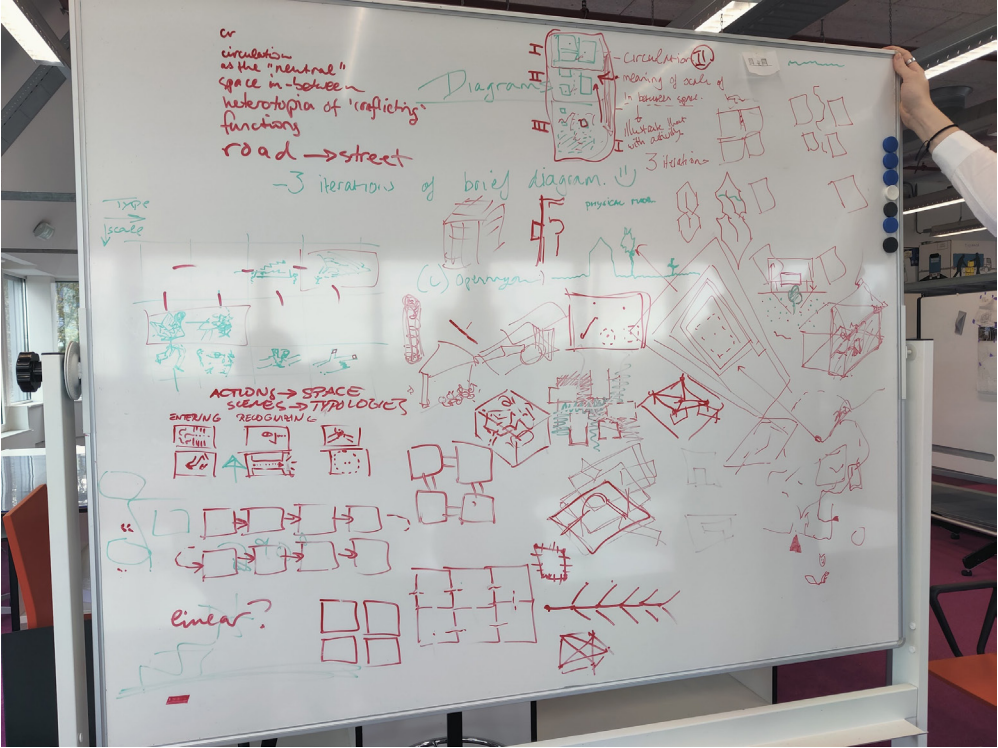 or
circulation
as the "neutral"
space in-between
heterotopia of 'conflicting'
functions
road → street
Diagram
I
II
III
- circulation II
meaning of scale of
in between space.
illustrate that
with activity
3 iterations
- 3 iterations of brief diagram.
physical model
Type
scale
ACTIONS → SPACE
SCENES → TYPOLOGIES
ENTERING RECOGNIZING
linear?